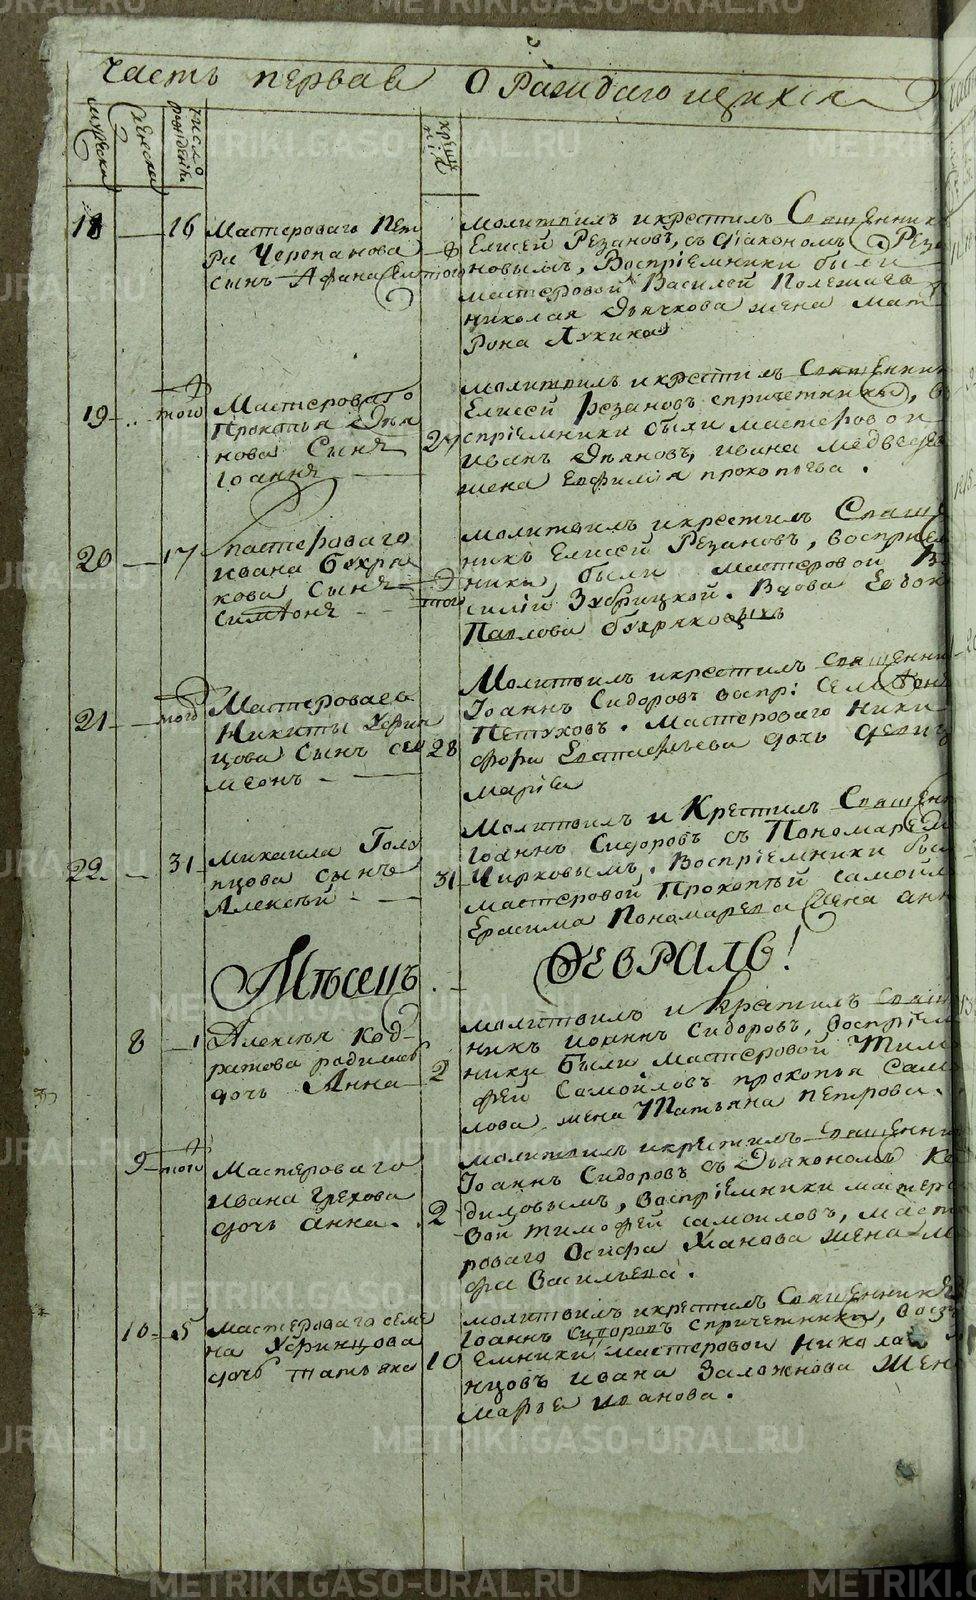 METRIKI.GASO-URAL.RU
часть первая О Раждающихся
мужеска
женска
число рождения
крещения
18 — 16 Мастероваго Пет
ра Черепанова
сынъ Афанасей того
молитвилъ и крестилъ Священникъ
Елисей Резановъ, съ діакономъ Реза
новымъ, Воспріемники были
мастеровой Василей Полежаевъ
николая Дьячкова жена мат
рона Лукина
19 — того Мастероваго
Прокопья Дья
нова Сынъ
Іоаннъ
24
молитвилъ и крестилъ Священник
Елисей Резановъ спричетники, во
спріемники были мастеровои
иванъ Дьяновъ, ивана медведев
жена Евфимія прокопьева.
20 — 17 мастероваго
ивана Бухря
кова Сынъ
симеонъ
того
молитвилъ и крестилъ Свящ
никъ Елисей Резановъ, воспріем
ники, были мастеровой Ва
силій Зубрицкой. Вдова Евдок
Павлова бухряковыхъ
21 — того Мастероваго
Никиты Уфин
цова Сынъ сем
меонъ
28
Молитвилъ и крестилъ священни
Іоаннъ Сидоровъ воспрі: семенъ
Петуховъ. Мастероваго Ники
фора Евстафьева дочь девиц
марія
22. — 31 михаила Голо
пцова сынъ
Алексѣй
31
Молитвилъ и Крестилъ Священ
Іоаннъ Сидоровъ съ Пономаремъ
Чирковымъ. Воспріемники был
мастеровой Прокопій самойл
Ерасима Пономарева Жена анн
Мѣсецъ ФЕВРАЛЬ!
8 — 1 Алексѣя Код-
ратова родилась
дочь Анна
2
молитвилъ и крестилъ свящ
никъ иоаннъ Сидоровъ, воспріем
ники Были мастеровой Тимо
фей Самойловъ прокопья Само
лова жена Татьяна петрова.
9 — того Мастероваго
ивана Грехова
дочь анна.
2
молитвилъ и крестилъ священни
Іоаннъ Сидоровъ съ Дьякономъ Ко
диловымъ, Воспріемники мастеро
вой тимофей самоиловъ, масте
роваго Осифа Жданова жена ма
фа Васильева.
10 — 5 мастероваго семе
на Уфинцова
дочь татьяна
10
молитвилъ и крестилъ Священникъ
Іоаннъ Сидоровъ спричетники, воспрі
емники мастеровои николай
нцовъ ивана Заложнова Жен
марѳа иванова.
METRIKI.GASO-URAL.RU